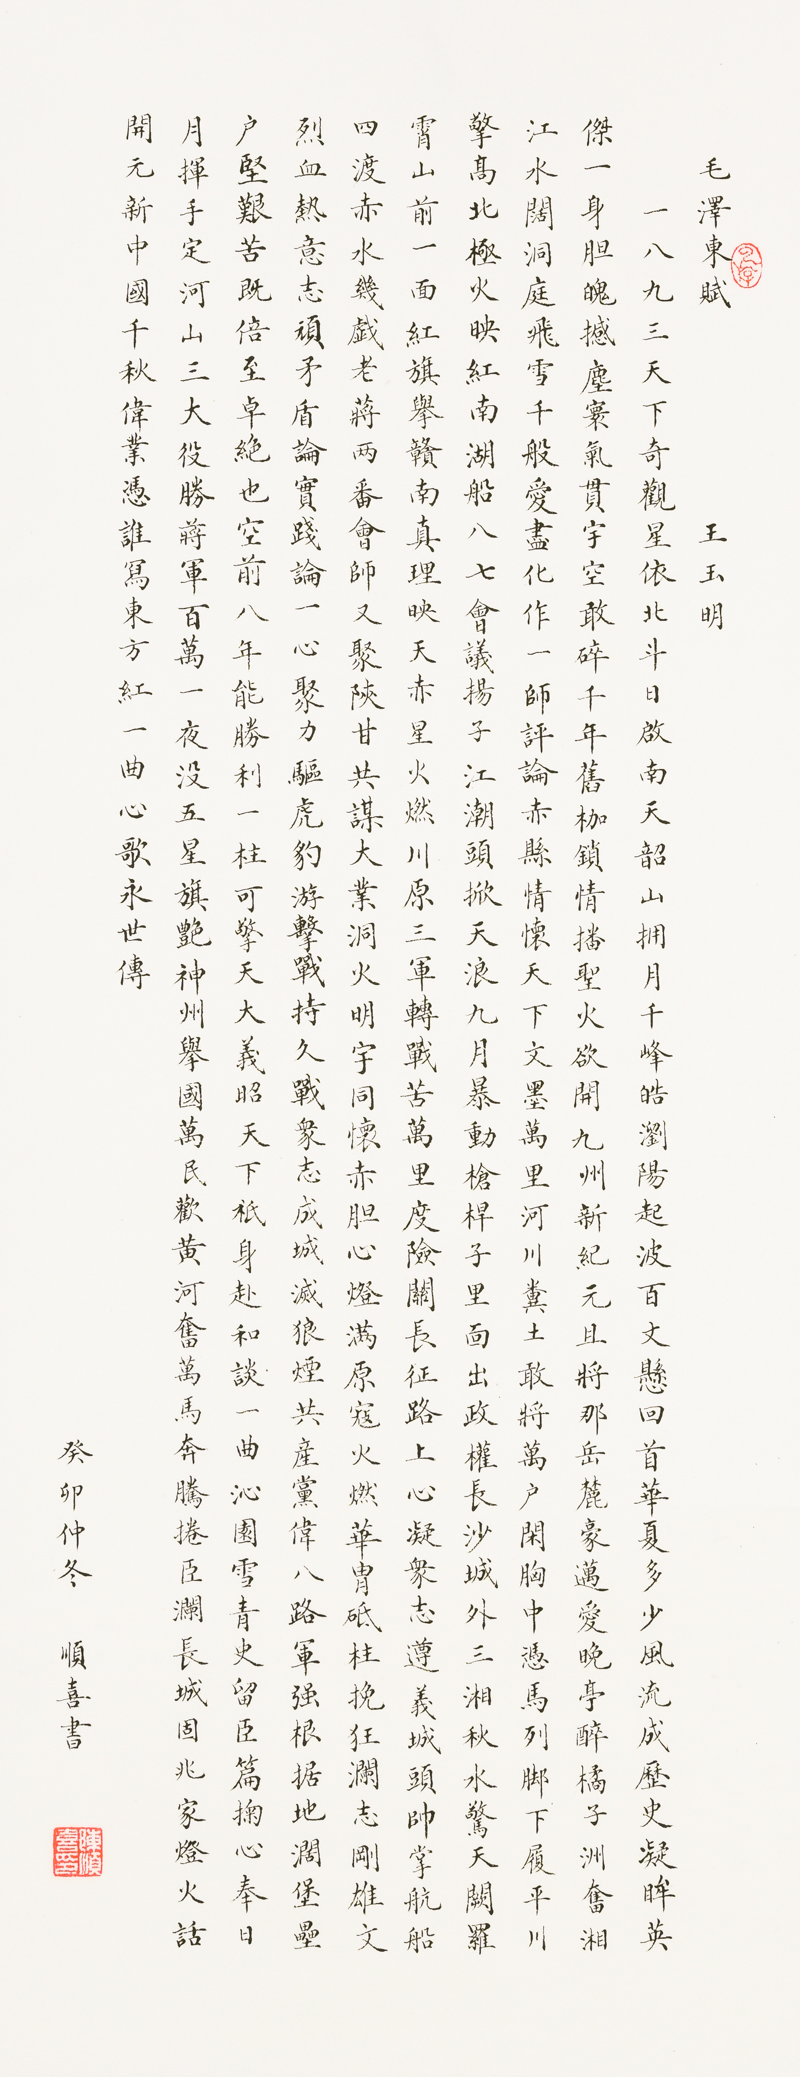 毛澤東賦　王玉明
一八九三天下奇觀星依北斗日啟南天韶山拥月千峰皓瀏陽起波百丈懸回首華夏多少風流成歷史凝眸英
傑一身胆魄撼塵寰氣貫宇空敢碎千年舊枷鎖情播聖火欲開九州新紀元且將那岳麓豪邁愛晚亭醉橘子洲奮湘
江水闊洞庭飛雪千般愛盡化作一師評論赤縣情懷天下文墨萬里河川糞土敢將萬户閑胸中憑馬列脚下履平川
擎高北極火映紅南湖船八七會議揚子江潮頭掀天浪九月暴動槍桿子里面出政權長沙城外三湘秋水驚天闕羅
霄山前一面紅旗舉贛南真理映天赤星火燃川原三軍轉戰苦萬里度險關長征路上心凝衆志遵義城頭帥掌航船
四渡赤水幾戲老蔣两番會師又聚陝甘共謀大業洞火明宇同懷赤胆心燈满原寇火燃華胄砥柱挽狂瀾志剛雄文
烈血熱意志頑矛盾論實踐論一心聚力驅虎豹游擊戰持久戰衆志成城滅狼煙共産黨偉八路軍强根据地濶堡壘
户堅艱苦既倍至卓絶也空前八年能勝利一柱可擎天大義昭天下祇身赴和談一曲沁園雪青史留臣篇掬心奉日
月揮手定河山三大役勝蔣軍百萬一夜没五星旗艷神州舉國萬民歡黄河奮萬馬奔騰捲臣瀾長城固兆家燈火話
開元新中國千秋偉業憑誰寫東方紅一曲心歌永世傳
癸卯仲冬　順喜書
陳順喜印